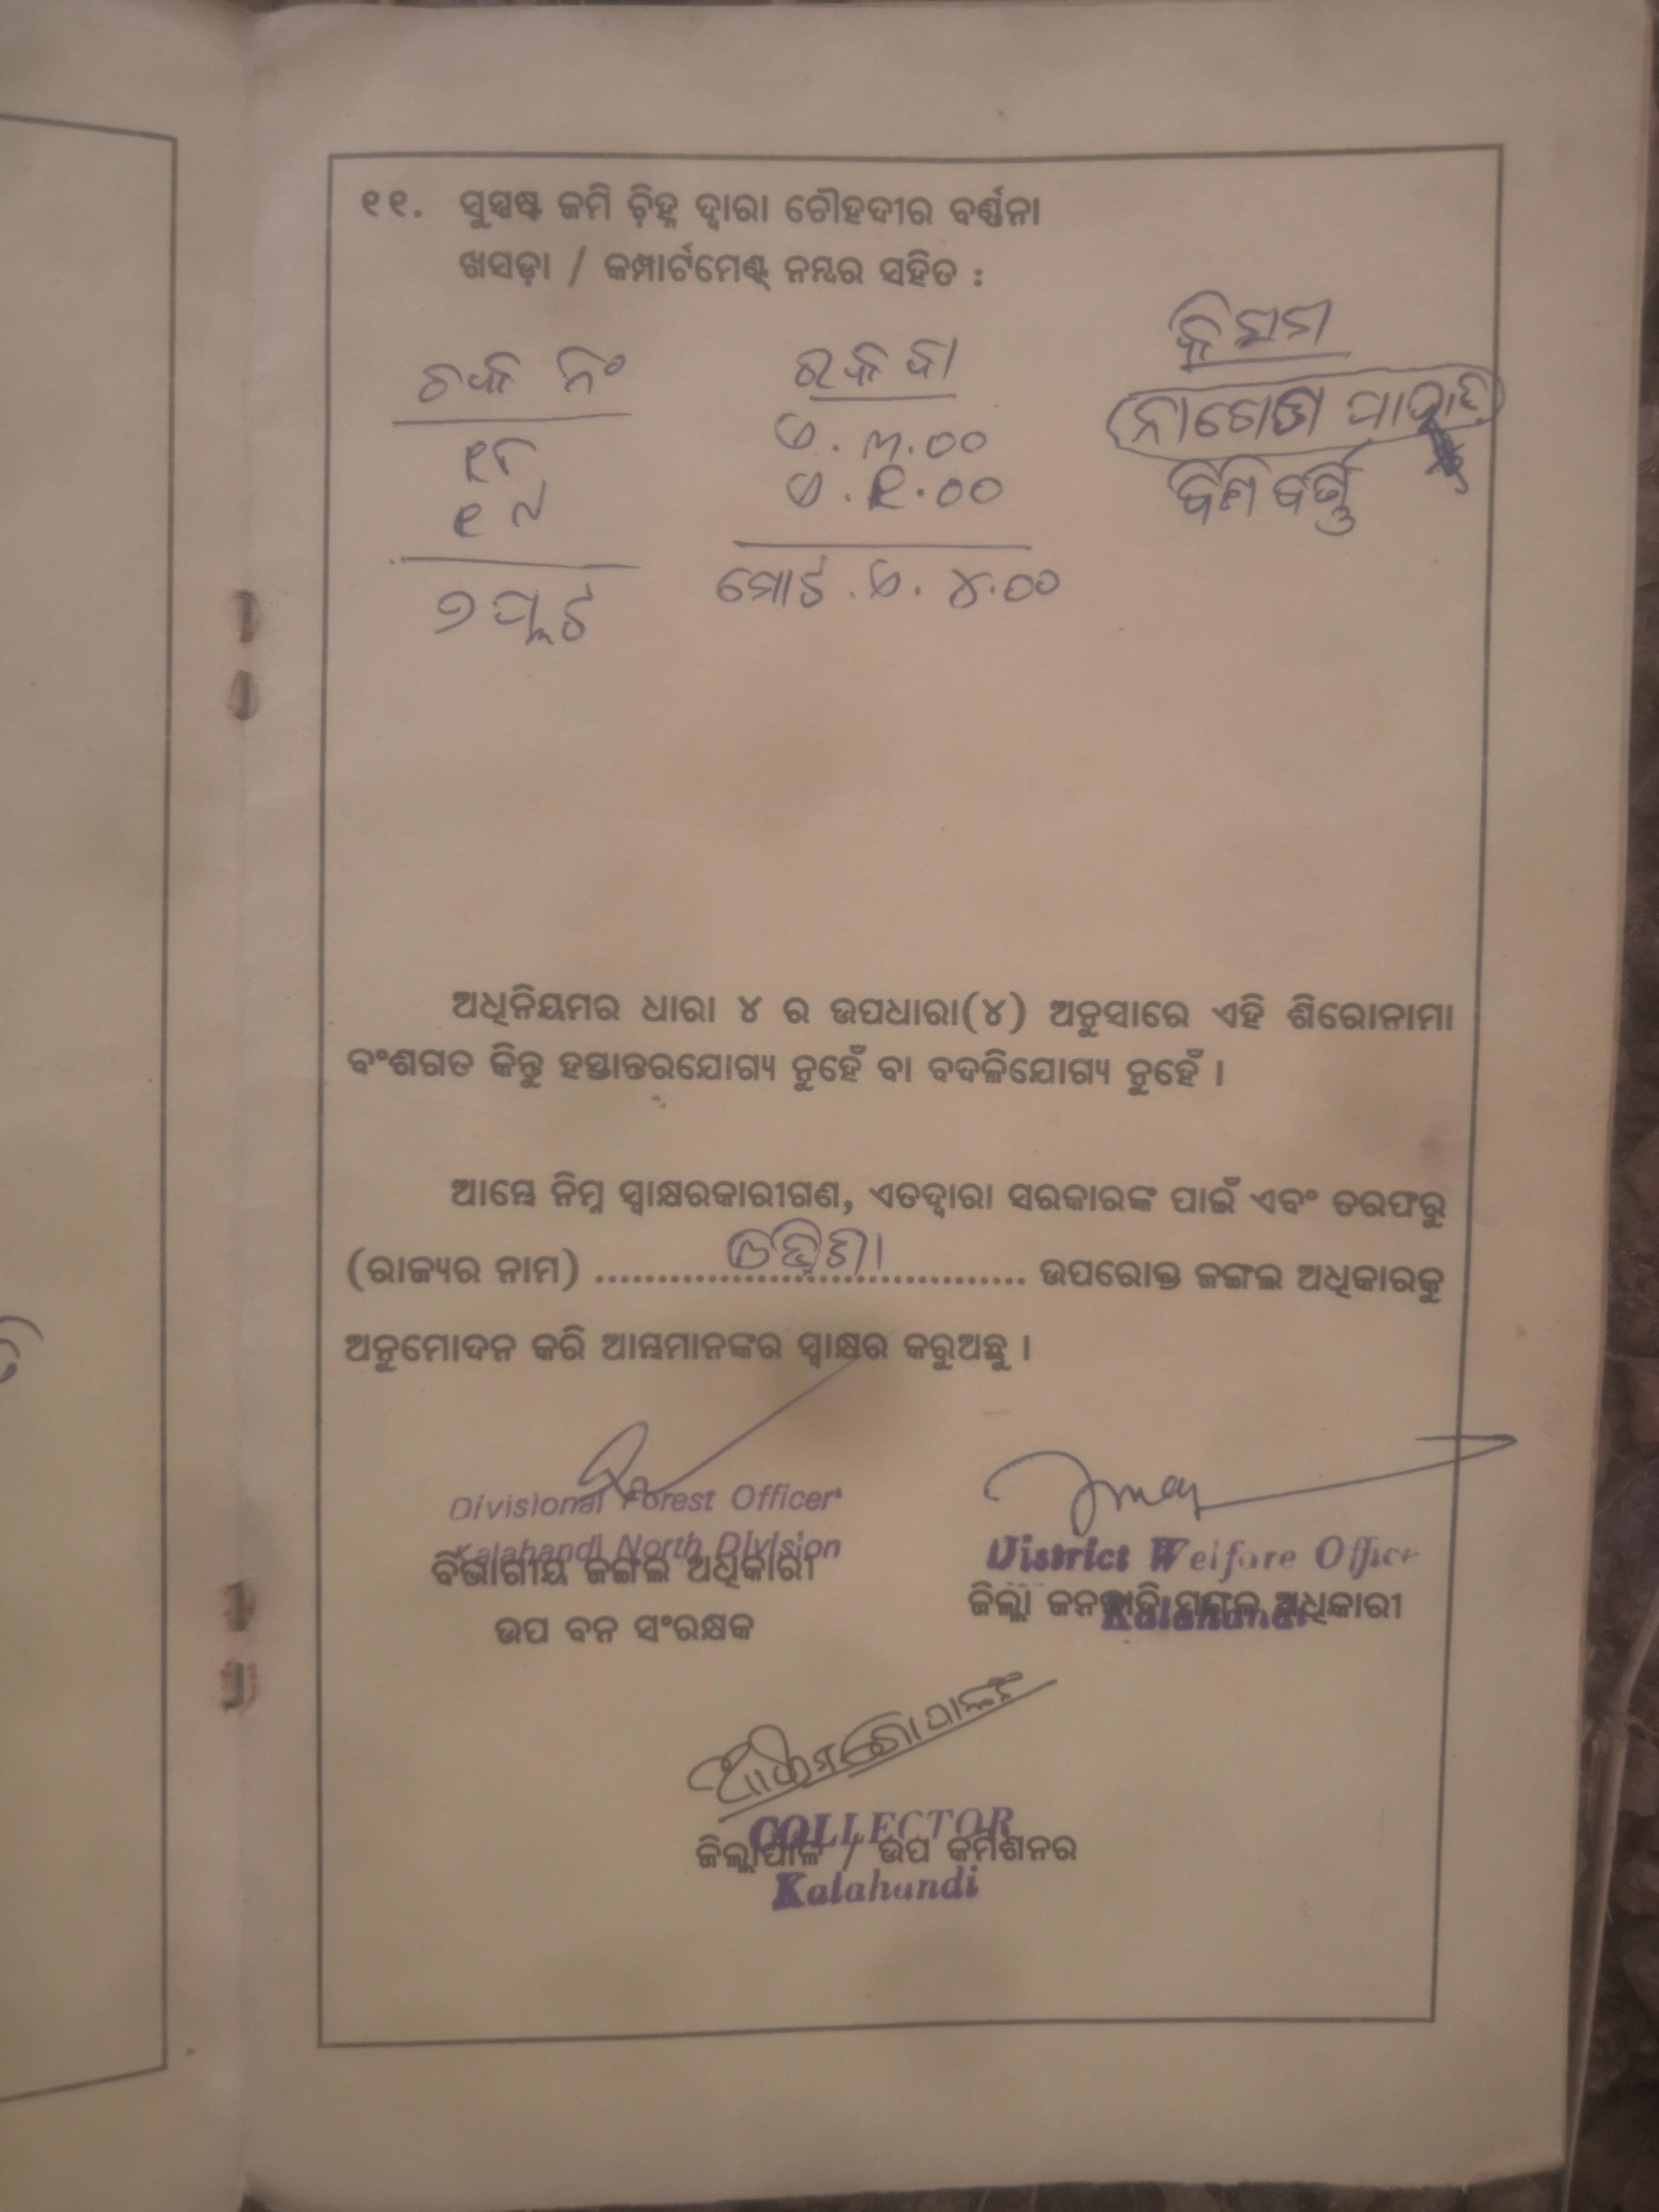 ୧୧. ସୁସ୍ପଷ୍ଟ ଜମି ଚ଼ିହ୍ନ ଦ୍ୱାରା ଚୌହଦୀର ବର୍ଣ୍ଣନା
ଖସଡ଼ା / କମ୍ପାର୍ଟମେଣ୍ଟ୍ ନମ୍ବର ସହିତ :
ଚକ ନଂ ରକବା କିସମ
୧୮ ଏ.୩.୦୦
୧୯ ଏ.୧.୦୦
୨ ପ୍ଲଟ ମୋଟ ଏ. ୪.୦୦
ଅଧିନିୟମର ଧାରା ୪ ର ଉପଧାରା(୪) ଅନୁସାରେ ଏହି ଶିରୋନାମା
ବଂଶଗତ କିନ୍ତୁ ହସ୍ତାନ୍ତରଯୋଗ୍ୟ ନୁହେଁ ବା ବଦଳିଯୋଗ୍ୟ ନୁହେଁ ।
ଆମ୍ଭେ ନିମ୍ନ ସ୍ୱାକ୍ଷରକାରୀଗଣ, ଏତଦ୍ୱାରା ସରକାରଙ୍କ ପାଇଁ ଏବଂ ତରଫରୁ
(ରାଜ୍ୟର ନାମ) ଓଡ଼ିଶା ଉପରୋକ୍ତ ଜଙ୍ଗଲ ଅଧିକାରକୁ
ଅନୁମୋଦନ କରି ଆମ୍ଭମାନଙ୍କର ସ୍ୱାକ୍ଷର କରୁଅଛୁ ।
Divisional Forest Officer
Kalahandi North Division
ବିଭାଗୀୟ ଜଙ୍ଗଲ ଅଧିକାରୀ
ଉପ ବନ ସଂରକ୍ଷକ
District Welfare Office
ଜିଲ୍ଲା ଜନଜାତି ମଙ୍ଗଳ ଅଧିକାରୀ
Kalahandi
COLLECTOR
ଜିଲ୍ଲାପାଳ / ଉପ କମିଶନର
Kalahandi